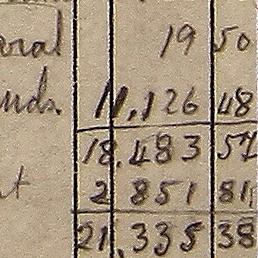 19 50
unds. 11,126 48
18,483 57
t 2 851 81
21,335 38